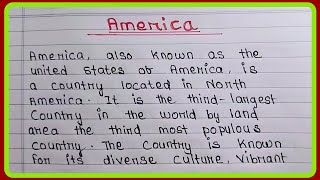 America
America, also known as the
united states of America, is
a country located in North
America. It is the third-largest
Country in the world by land
area the third most populous
country. The Country is Known
for its diverse culture, Vibrant